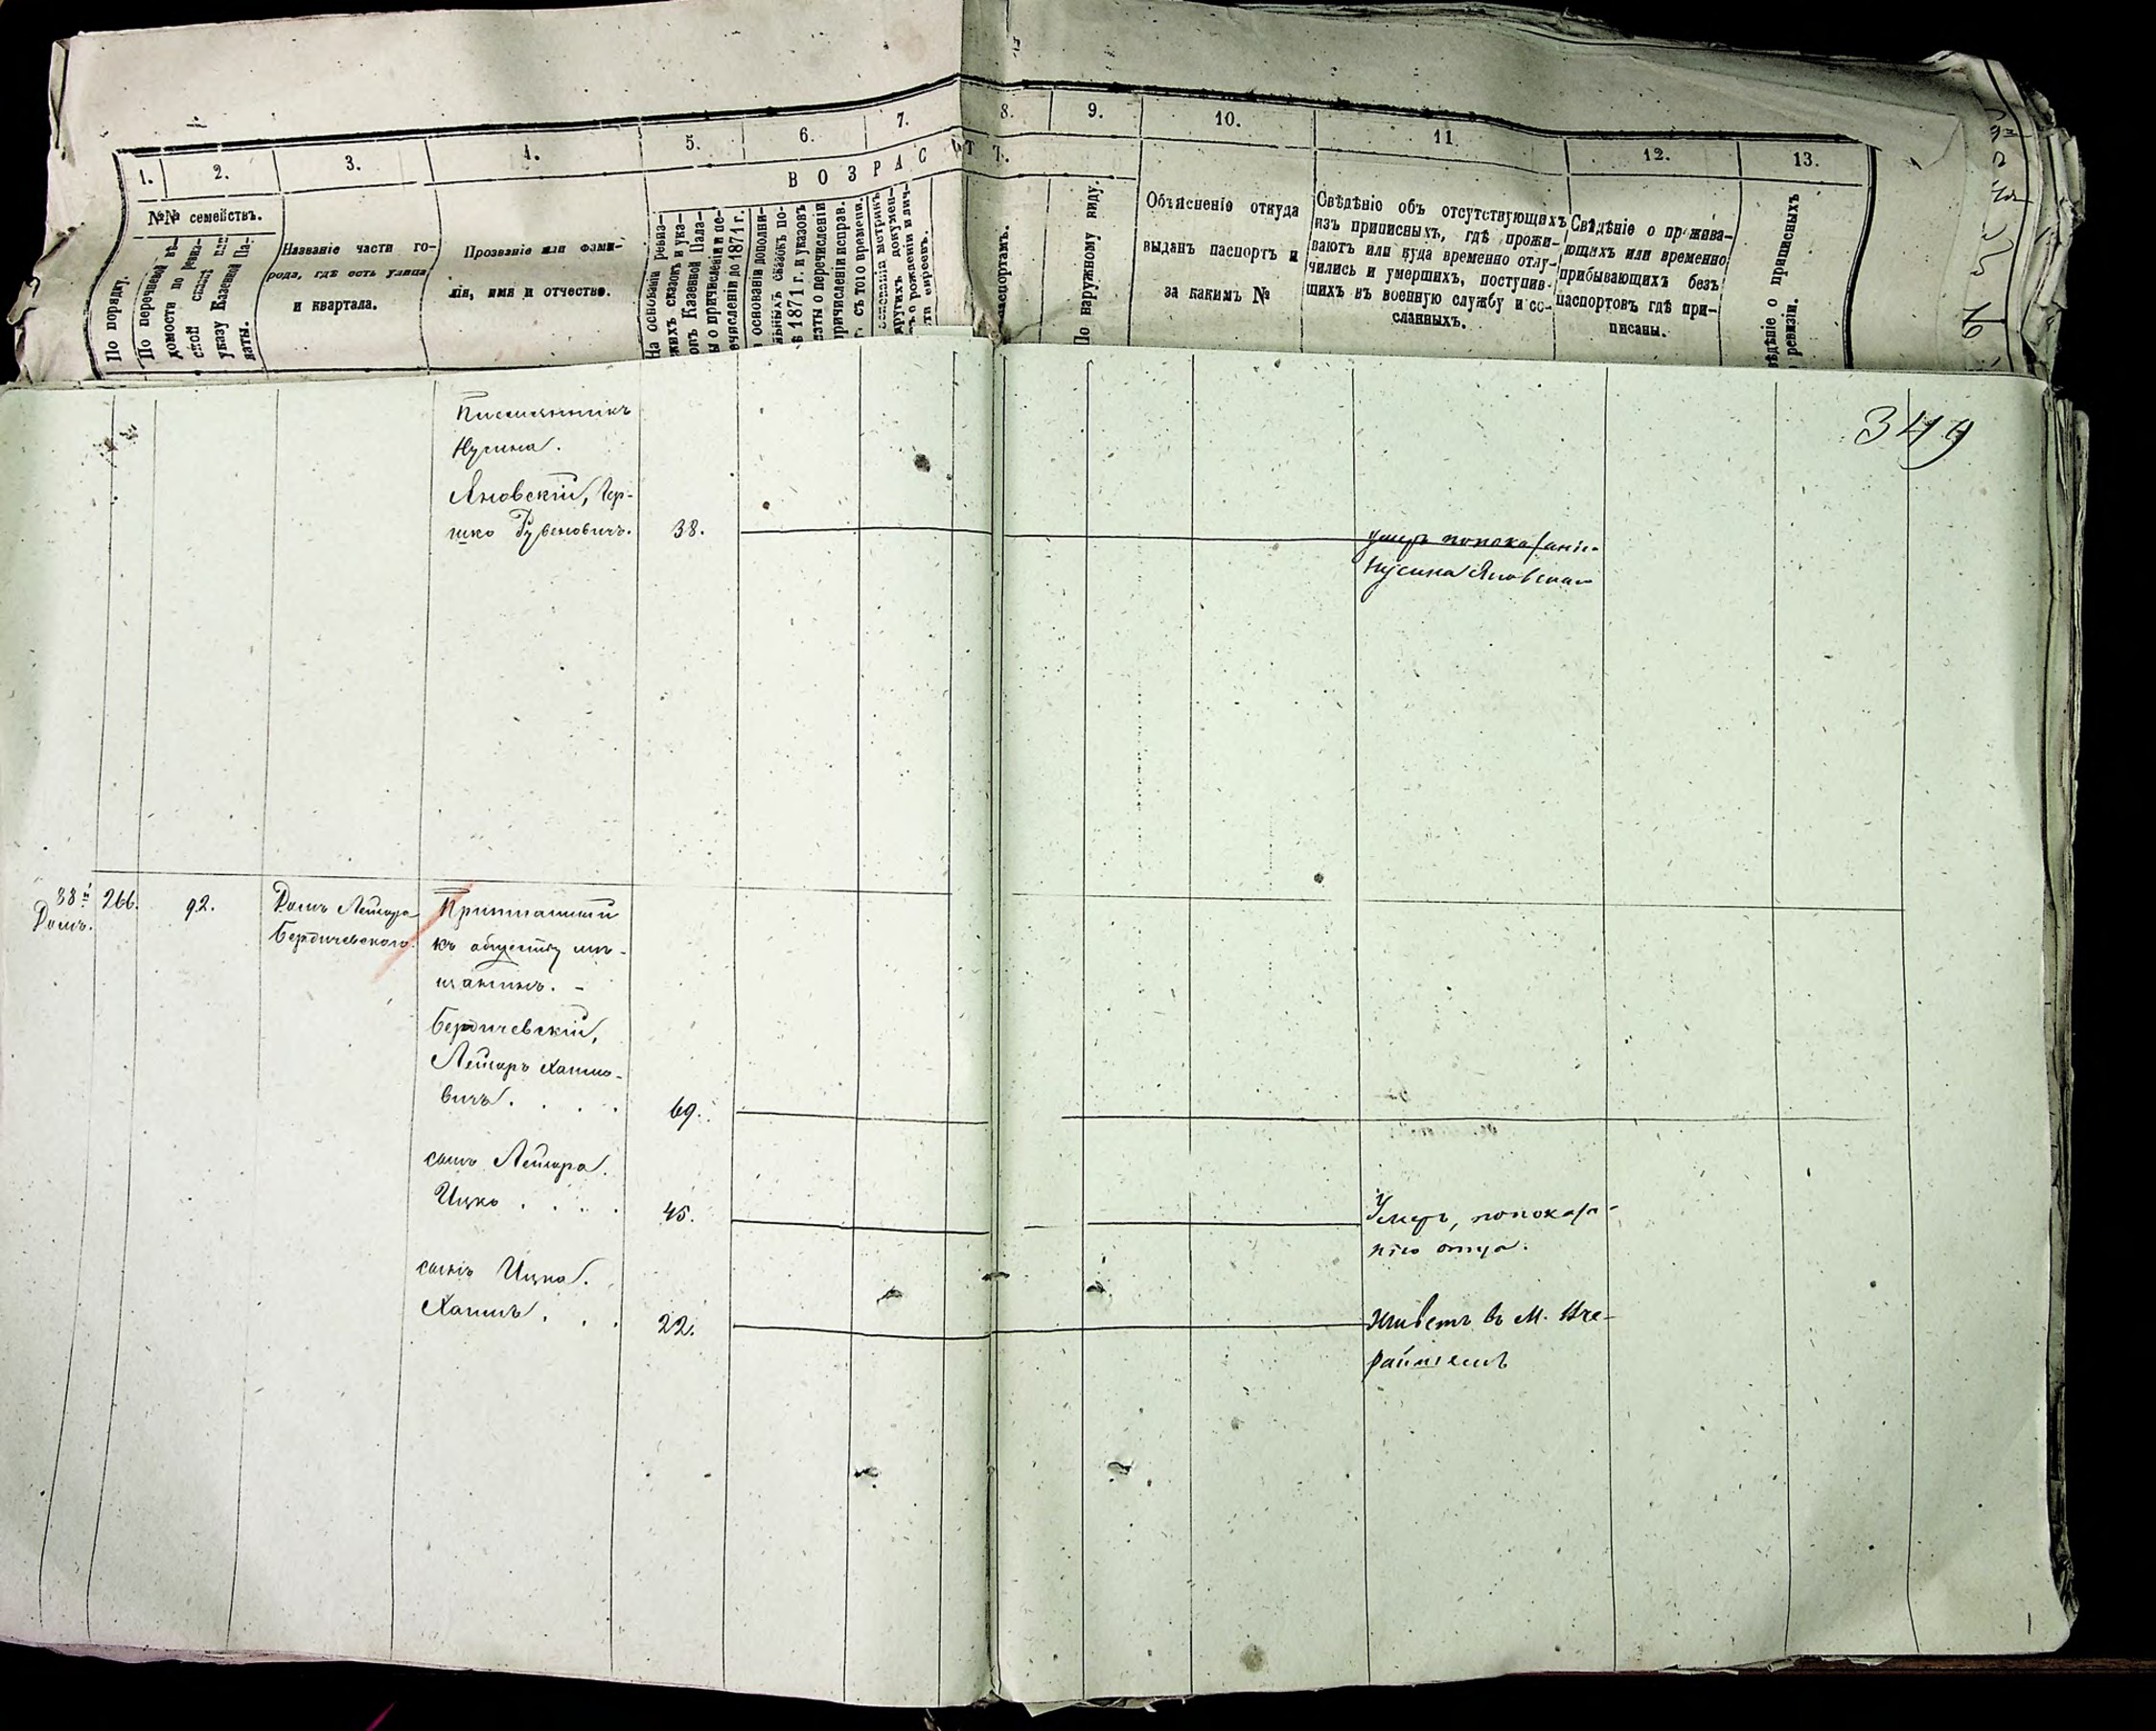 1.
2.
3.
4.
5.
6.
7.
8.
9.
10.
11.
12.
13.
ВОЗРАСТЪ.
№№ семействъ.
По порядку.
По перечневой вѣ-
домости по ревиз-
ской сказкѣ или
указу Казеной Па-
латы.
Названіе части го-
рода, гдѣ есть улица
и квартала.
Прозваніе или фами-
лія, имя и отчество.
На основаніи ревиз-
скихъ сказокъ и ука-
зовъ Казеной Пала-
ты о причисленіи и пе-
речисленіи до 1871 г.
основаніи дополни-
тельныхъ сказокъ по-
1871 г. и указовъ
латы о перечисленіи
причисленіи исправ.
съ того времени.
основаніи метрикъ
другихъ докумен-
о рожденіи и лич-
ти евреевъ.
паспортамъ.
По наружному виду.
Объясненіе откуда
выданъ паспортъ и
за какимъ №
Свѣдѣніе объ отсутствующихъ
изъ приписныхъ, гдѣ прожи-
ваютъ или куда временно отлу-
чились и умершихъ, поступив-
шихъ въ военную службу и со-
сланныхъ.
Свѣдѣніе о прожива-
ющихъ или временно
прибывающихъ безъ
паспортовъ гдѣ при-
писаны.
свѣдѣніе о приписныхъ
ревизіи.
349
Племянникъ
Нусина.
Яновскій, Гер-
шко Рувеновичъ.
38.
умеръ по показанію
Нусина Яновскаго
38й
Домъ.
266.
92.
Домъ Лейзора
Бердичевского
Приписанный
къ обществу мѣ-
щанинъ. -
Бердичевскій,
Лейзоръ Хаимо-
вичъ. . . .
69.
сынъ Лейзора.
Ицко . . . .
45.
Умеръ, по показа-
нію отца.
сынъ Ицка.
Хаимъ. . .
22.
живетъ въ М. Вче-
райшемъ